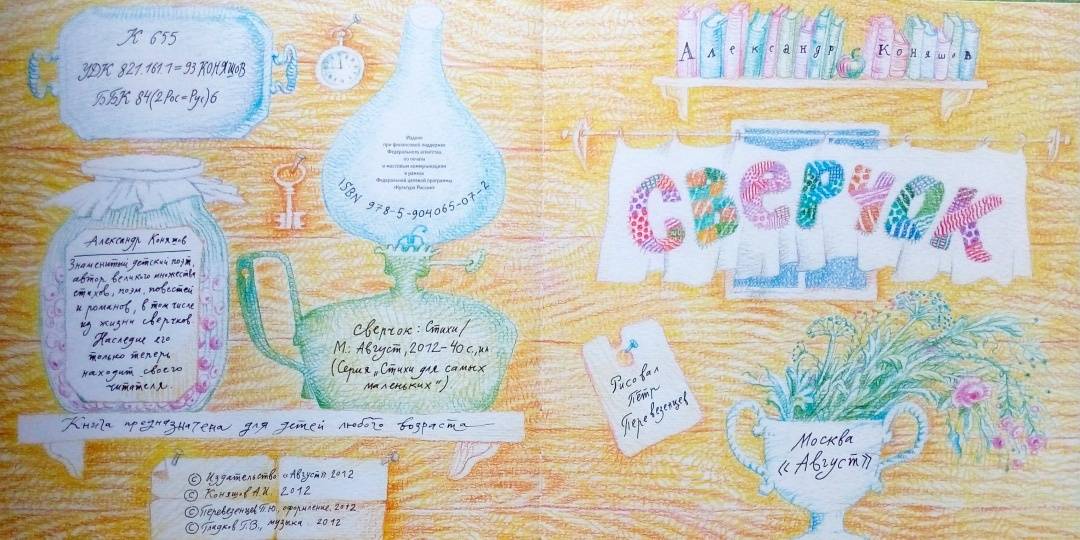 К 655
УДК 821.161.1=93 КОНЯШОВ
ББК 84(2Рос=Рус)6
Издано
при финансовой поддержке
Федерального агентства
по печати
и массовым коммуникациям
в рамках
Федеральной целевой программы
«Культура России»
ISBN 978-5-904065-07-2
Александр Коняшов
Знаменитый детский поэт,
автор великого множества
стихов, поэм, повестей
и романов, в том числе
из жизни сверчков.
Наследие его
только теперь
находит своего
читателя.
Сверчок: Стихи/
М.: Август, 2012-40 с., ил
(Серия „Стихи для самых
маленьких")
Книга предназначена для детей любого возраста
© Издательство «Август» 2012
© Коняшов А.И. 2012
© Перевезенцев П.Ю., оформление. 2012
© Гладков Г.В., музыка. 2012
Александр Коняшов
СВЕРЧОК
Рисовал
Пётр
Перевезенцев
Москва
«Август»